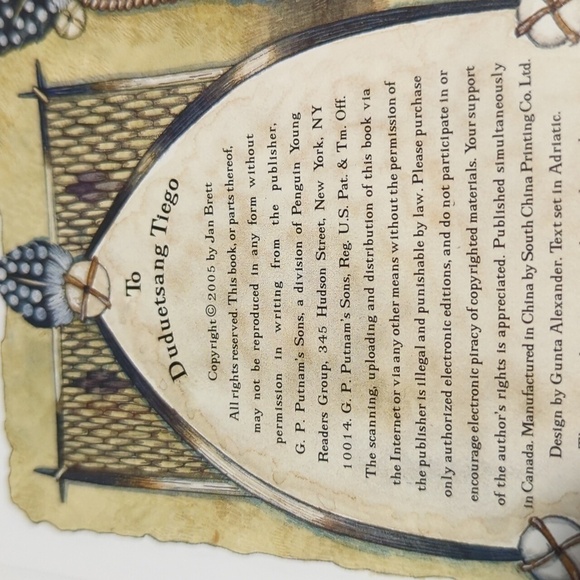 To
Duduetsang Tiego
Copyright © 2005 by Jan Brett
All rights reserved. This book, or parts thereof,
may not be reproduced in any form without
permission in writing from the publisher,
G. P. Putnam's Sons, a division of Penguin Young
Readers Group, 345 Hudson Street, New York, NY
10014. G. P. Putnam's Sons, Reg. U.S. Pat. & Tm. Off.
The scanning, uploading and distribution of this book via
the Internet or via any other means without the permission of
the publisher is illegal and punishable by law. Please purchase
only authorized electronic editions, and do not participate in or
encourage electronic piracy of copyrighted materials. Your support
of the author's rights is appreciated. Published simultaneously
in Canada. Manufactured in China by South China Printing Co. Ltd.
Design by Gunta Alexander. Text set in Adriatic.